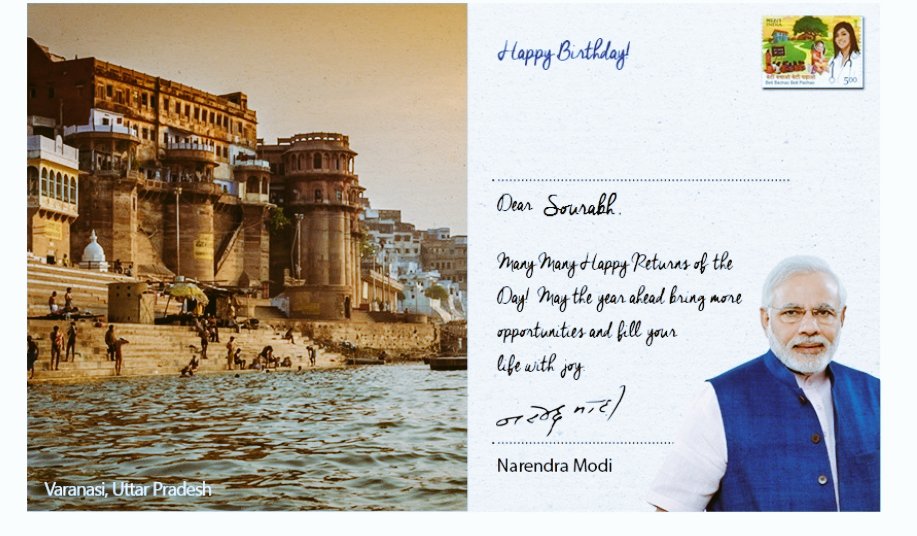 Happy Birthday!
INDIA
बेटी बचाओ बेटी पढ़ाओ
Beti Bachao Beti Padhao
500
Dear Sourabh.
Many Many Happy Returns of the
Day! May the year ahead bring more
opportunities and fill your
life with joy.
नरेन्द्र मोदी
Narendra Modi
Varanasi, Uttar Pradesh